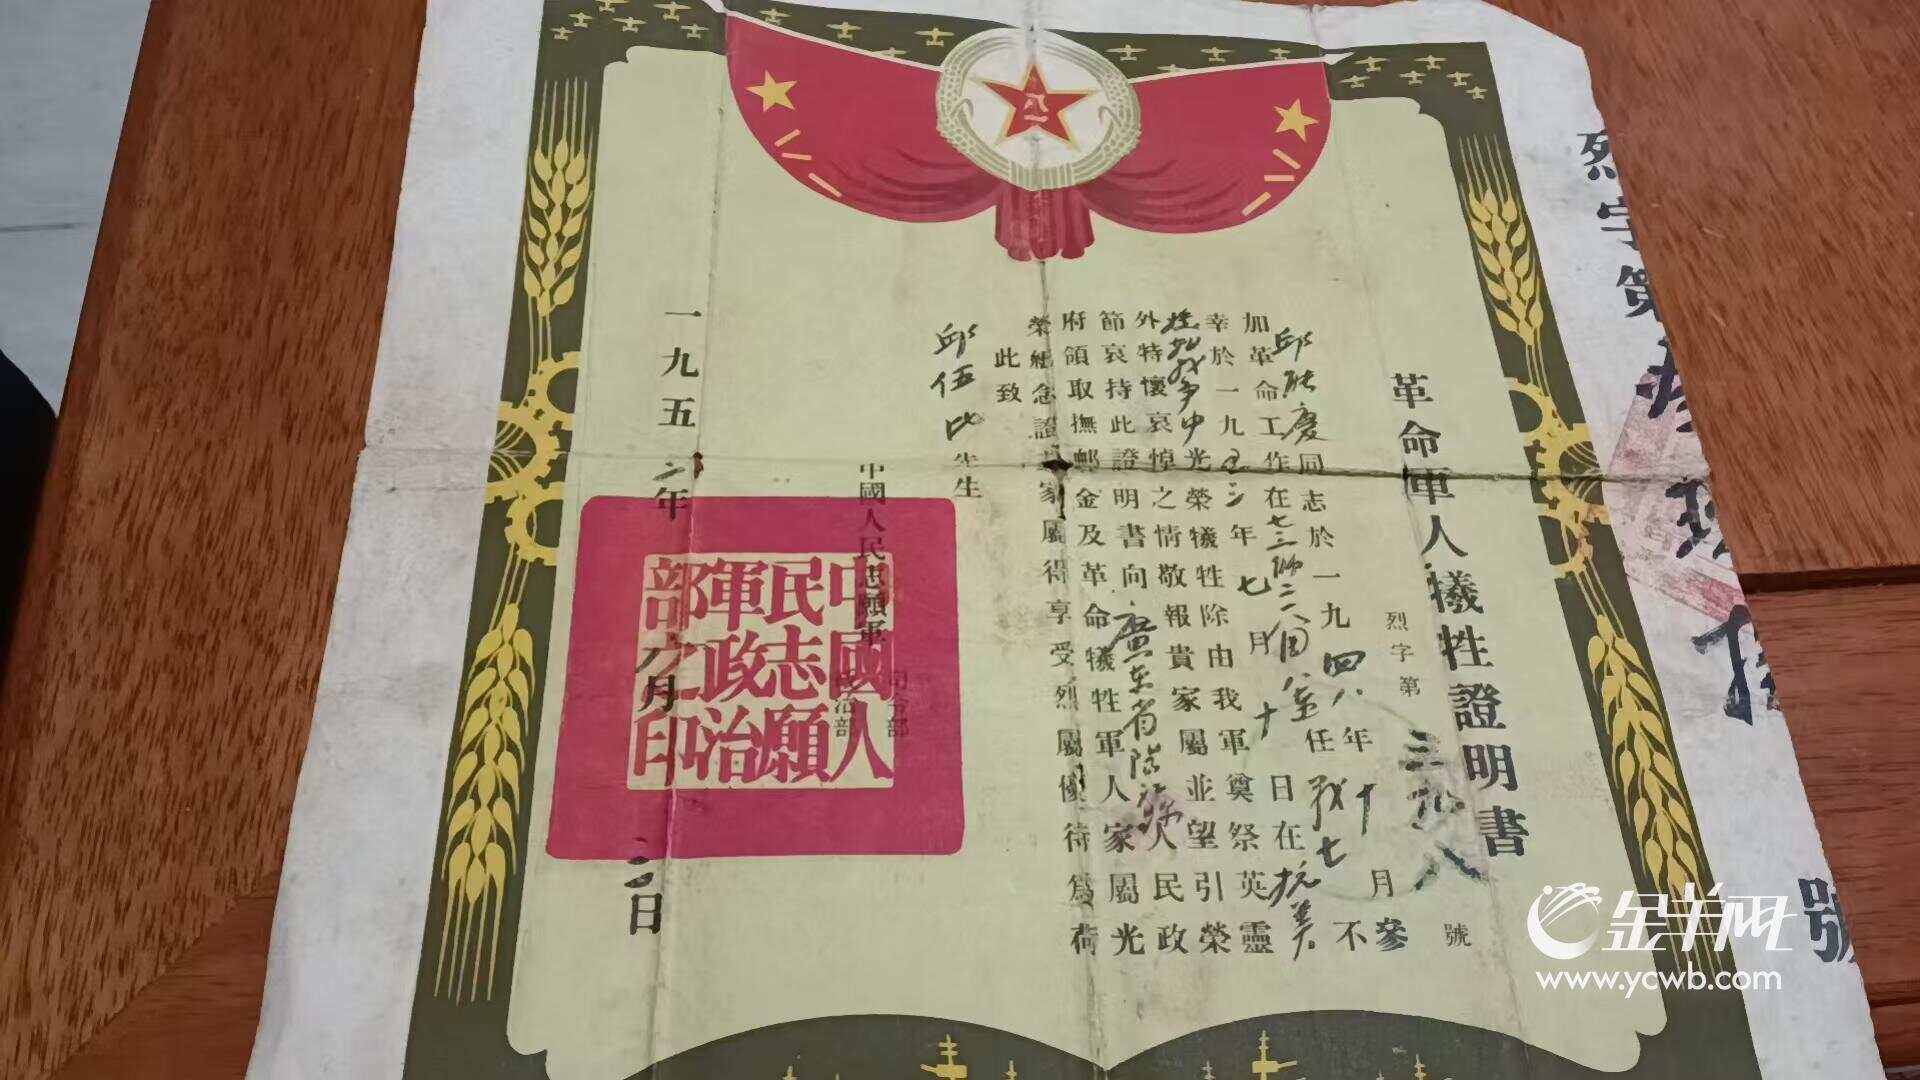 革命軍人犧牲證明書
烈字第 三九八 號
邱 慶同志於一九四八年十月參
加革命工作在七三師二八團 任戰 不
幸於一九五三年七月十七日在抗美
戰爭中光榮犧牲除由我軍奠祭英靈
外特懷哀悼之情敬報貴家屬並望引榮
節哀持此證明書向廣東省 人民政
府領取撫卹金及革命犧牲軍人家屬光
榮紀念證 家屬得享受烈屬優待為荷
此致
邱伍 先生
中國人民志願軍
司令部
政治部
一九五 年 月 日
中國人民志願軍政治部之印
烈字第 號
八一
金羊网
www.ycwb.com